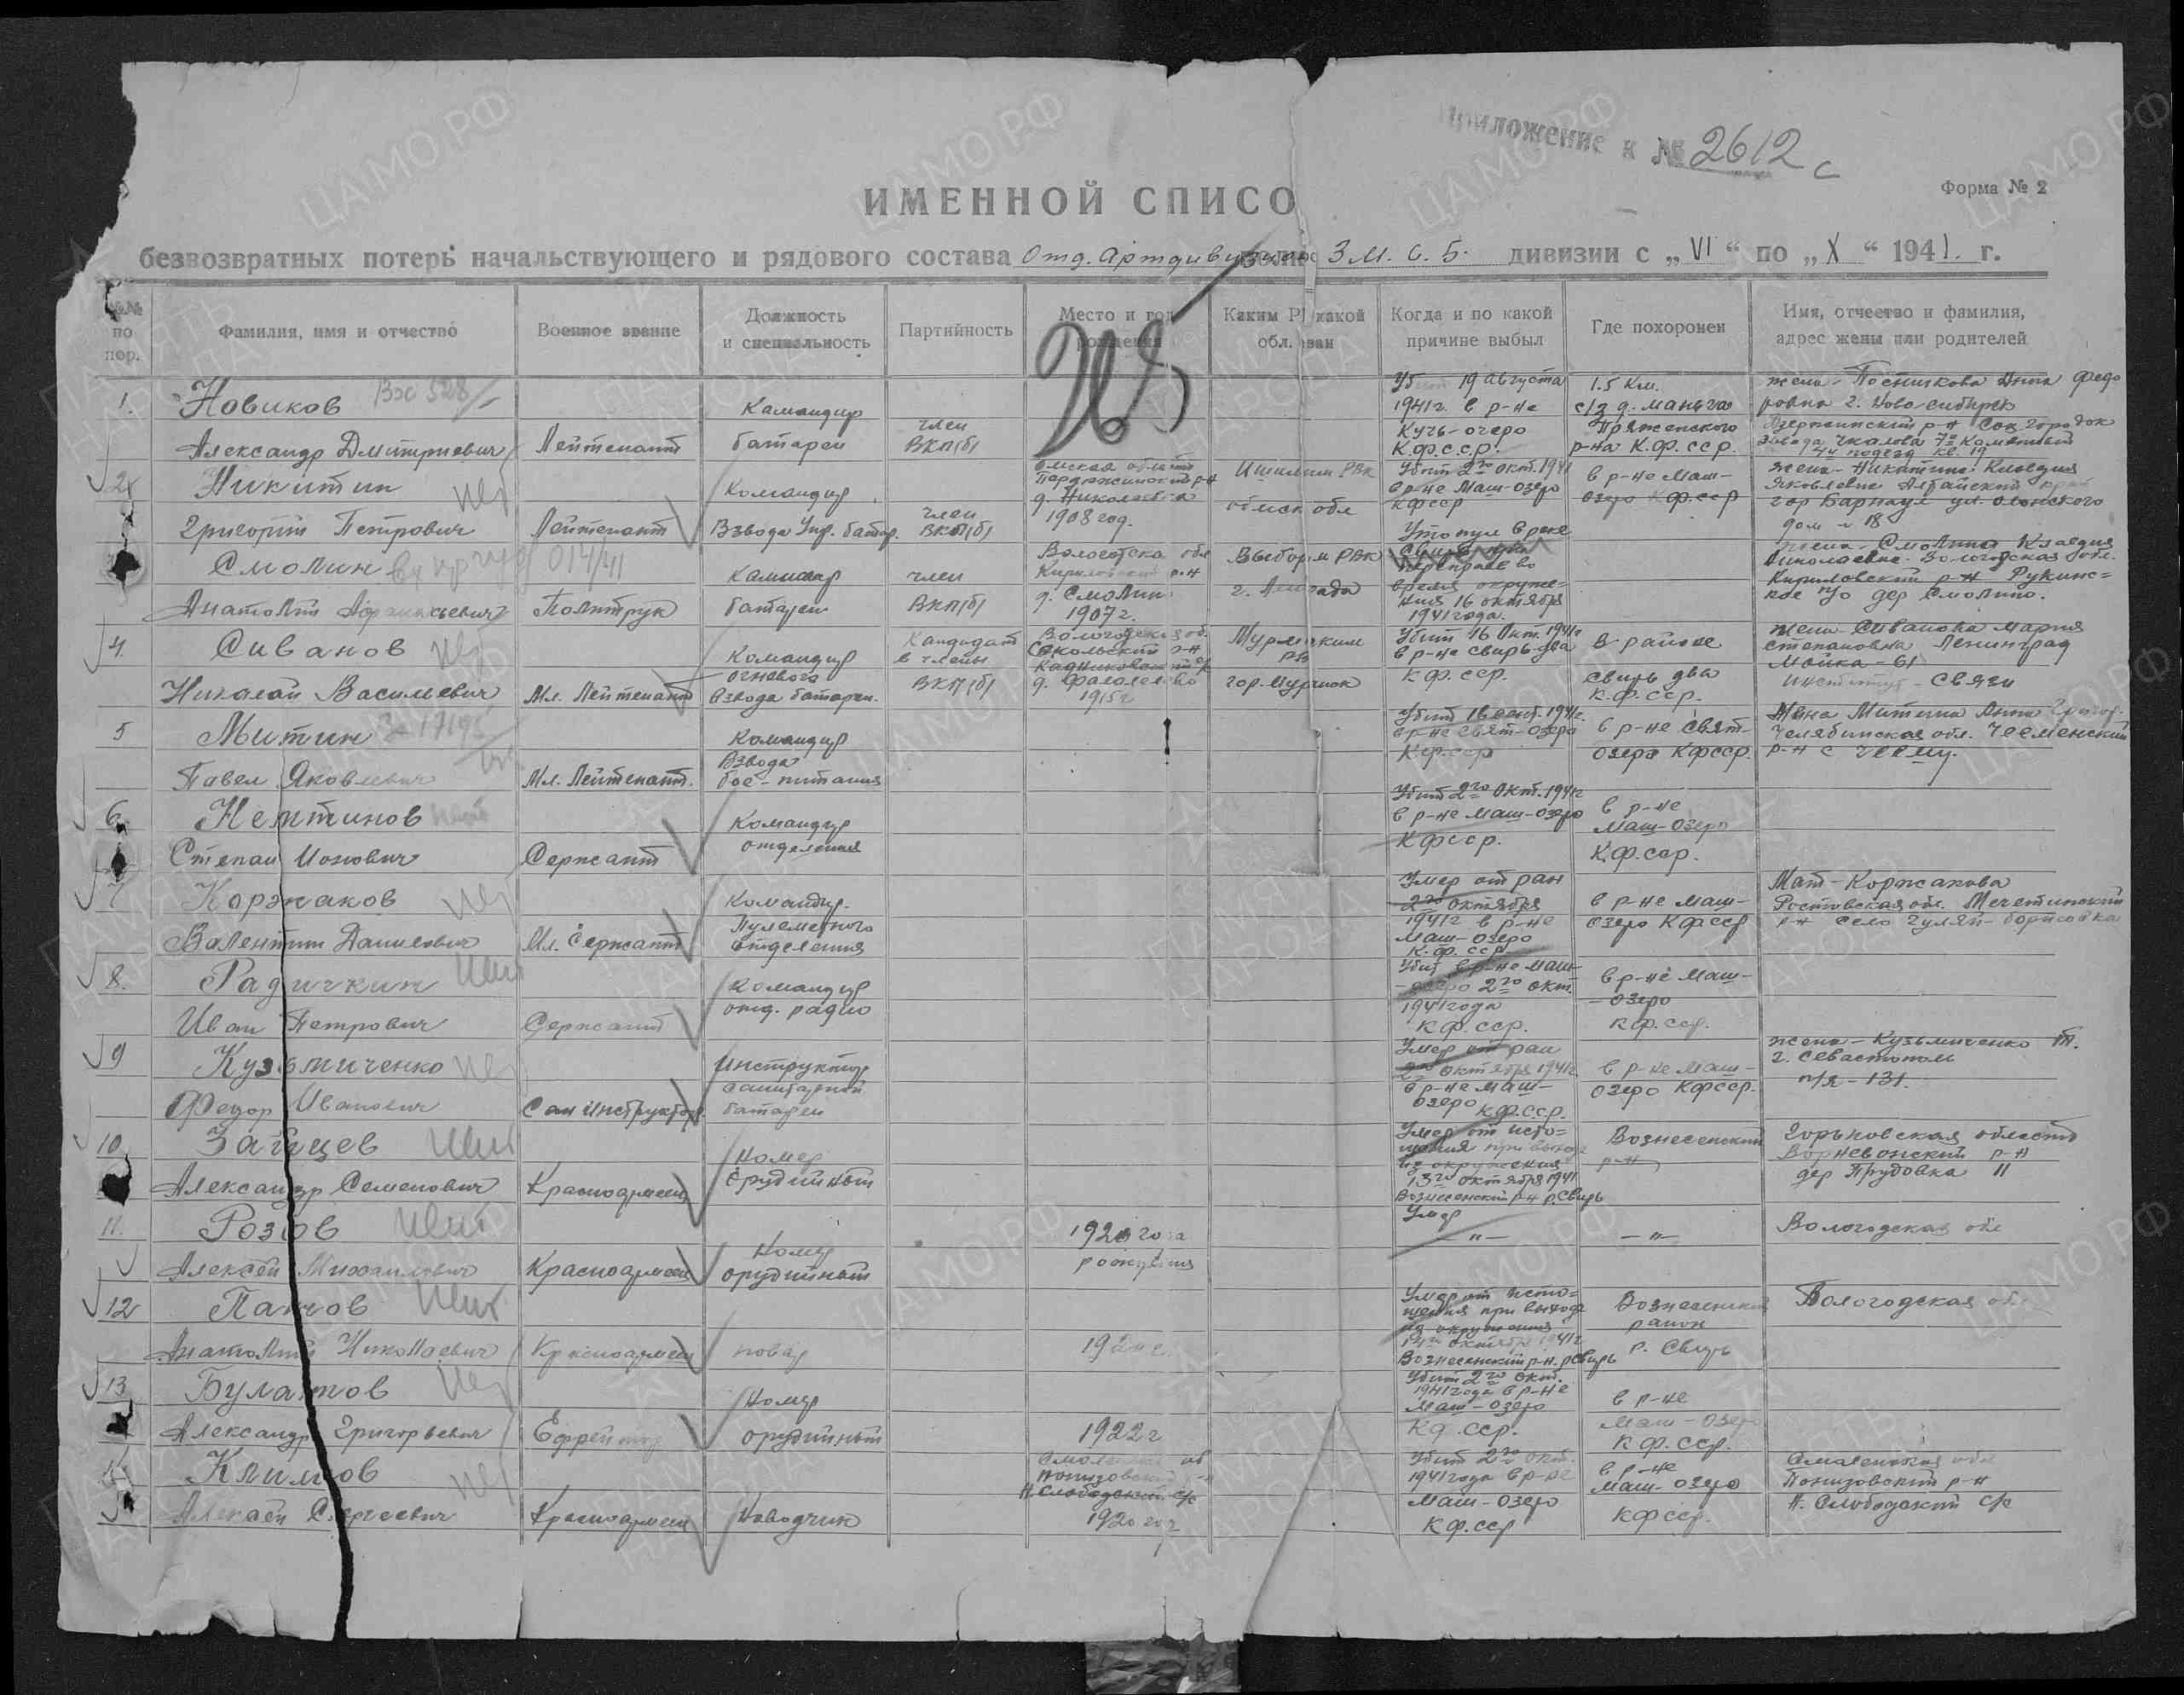 Приложение к № 2612 с
Форма № 2
ИМЕННОЙ СПИСО
безвозвратных потерь начальствующего и рядового состава Отд. Артдивизион 3 М. С. Б. дивизии с „VI“ по „X“ 1941. г.
№№ по пор.
Фамилия, имя и отчество
Военное звание
Должность и специальность
Партийность
Место и год рождения
Каким Р какой обл. зван
Когда и по какой причине выбыл
Где похоронен
Имя, отчество и фамилия, адрес жены или родителей
1.
Новиков
Александр Дмитриевич
Лейтенант
Командир
батареи
член
ВКП(б)
Убит 19 августа
1941г. в р-не
Кучь-озеро
К.Ф.С.С.Р.
1.5 км.
с/з д. Маньга
Пряженского
р-на К.Ф.ССР.
жена - Постникова Анна Федо
ровна г. Ново сибирск
Дзержинский р-н Соц городок
завода Чкалова 7й
подъезд кв. 19
2
Никитин
Григорий Петрович
Лейтенант
Командир
Взвода Упр. батар.
член
ВКП(б)
Омская область
д. Николаевка
1908 год.
Ишимским РВК
омск обл
Убит 2го окт. 1941
в р-не Маш-озеро
КФССР
в р-не Маш-
озеро КФССР
жена - Никитина Клавдия
Яковлевна Алтайский край
гор Барнаул ул. Олонского
дом № 18
Смолин
014/41
Анатолий
Политрук
Командир
батареи
член
ВКП(б)
Вологодска обл
Кирилловский р-н
д. Смолин
1907 г.
РВК
Утонул в реке
переправе во
время окруже-
ния 16 октября
1941 года.
жена - Смолина Клавдия
Николаевна Вологодская обл.
Кирилловский р-н Рукинс=
кое п/о дер Смолино.
4.
Сиванов
Николай Васильевич
Мл. Лейтенант
Командир
огневого
Взвода батареи.
Кандидат
в члены
ВКП(б)
Вологодская об.
Сокольский р-н
1915г
Мурманским
РВ
гор. Мурманск
Убит 16 Окт. 1941г
в р-не Свирь-два
К.Ф.ССР.
В районе
Свирь два
К.Ф.ССР.
жена - Сиванова Мария
Степановна Ленинград
Мойка - 61
институт - связи
5
Митин
Павел Яковлевич
Мл. Лейтенант.
Командир
Взвода
бое-питания
Убит 16 сент. 1941г.
в р-не Свят-озеро
К.Ф.ССР
в р-не Свят-
озера КФССР.
Жена Митина Анна Григор.
Челябинская обл. Чесменский
р-н с Чесму.
6.
Нектинов
Степан Ионович
Сержант
Командир
отделения
Убит 2го окт. 1941г
в р-не Маш-озеро
КФССР.
в р-не
Маш-Озеро
К.Ф.ССР.
7
Коржаков
Валентин Данилович
Мл. Сержант
Командир.
Пулеметного
отделения
Умер от ран
2го октября
1941г в р-не
Маш-озеро
К.Ф.ССР
в р-не Маш-
озеро КФССР
Мат - Коржакова
Ростовская обл. Мечетинский
р-н село Гуляй-борисовка
8.
Радичкин
Иван Петрович
Сержант
Командир
отд. радио
Убит в р-не Маш-
-озеро 2го окт.
1941 года
КФ.ССР.
в р-не Маш-
- озеро
КФ.ССР.
9
Кузьмиченко
Федор Иванович
Сан инструктор.
Инструктор
санитарной
батареи
Умер от ран
2го октября 1941г.
в р-не Маш-
озеро КФ.С.С.Р.
в р-не Маш-
озеро КФССР.
жена - Кузьмиченко М.
г. Севастополь
п/я - 131.
10
Зайцев
Александр Семенович
Красноармеец
Номер
орудийный
Умер от исто=
щения при выходе
из окружения
13го октября 1941
Вознесенский р-н р.Свирь
Вознесенский
р-н
Горьковская область
дер Прудовка 11
11.
Розов
Алексей Михайлович
Красноармеец
Номер
орудийный
1920 года
рождения
Умер
— „ —
— „ —
Вологодская обл
12
Панчов
Анатолий Николаевич
Красноармеец
повар
Умер от исто=
щения при выходе
из окружения
14го октября 1941г
Вознесенский р-н. р.Свирь
Вознесенский
район
р. Свирь
Вологодская об
13
Булатов
Александр Григорьевич
Ефрейтор
Номер
орудийный
1922 г
Убит 2го окт.
1941 года в р-не
Маш-озеро
КФ.ССР.
в р-не
Маш-озеро
КФ.ССР.
14
Климов
Алексей Сергеевич
Красноармеец
Наводчик
Понизовский р-н
Н. Слободский с/с
1920 год
Убит 2го окт.
1941 года в р-не
Маш-озеро
КФ.ССР
в р-не
Маш-озеро
КФССР.
Смоленская обл
Понизовский р-н
Н. Слободский с/с
ЦАМО.РФ